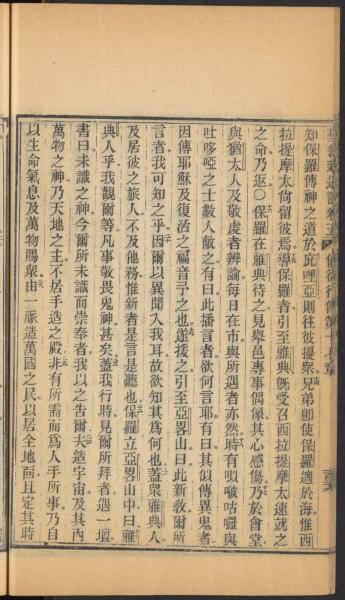 知保羅傳神之道於庇哩亞則往彼擾衆兄弟卽使保羅適於海惟西
拉提摩太尙留彼焉導保羅者引至雅典旣受召西拉提摩太速就之
之命乃返○保羅在雅典待之見舉邑專事偶像其心感傷乃於會堂
與猶太人及敬虔者辯論每日在市與所遇者亦然時有以啵咕囉與
吐哆啞之士數人敵之有曰此播言者欲何言耶有曰其似傳異鬼者
因傳耶穌及復活之福音子之也遂援之引至亞畧山曰此新敎爾所
言者我可知之乎因爾以異聞入我耳故欲知其爲何也蓋衆雅典人
及居彼之旅人不及他務惟新者是言是聽也保羅立亞畧山中曰雅
典人乎我觀爾等凡事敬畏鬼神甚矣蓋我行時見爾所拜者遇一壇
書曰未識之神今爾所未識而崇奉者我以之告爾夫造宇宙及其內
萬物之神乃天地之主不居手造之殿非有所需而爲人手所事乃自
以生命氣息及萬物賜衆由一脈造萬國之民以居全地面且定其時